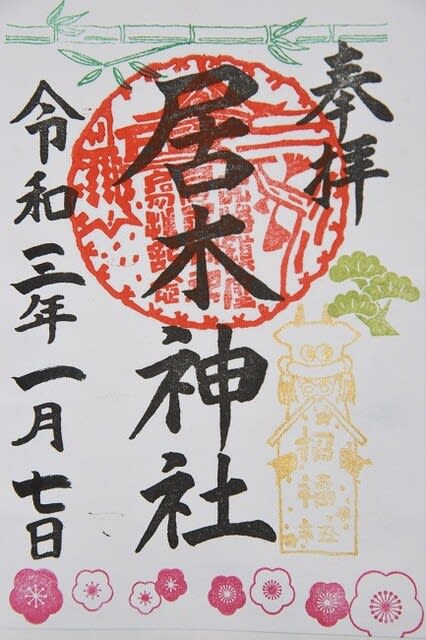 奉拝
居木神社
令和三年一月七日
招福社